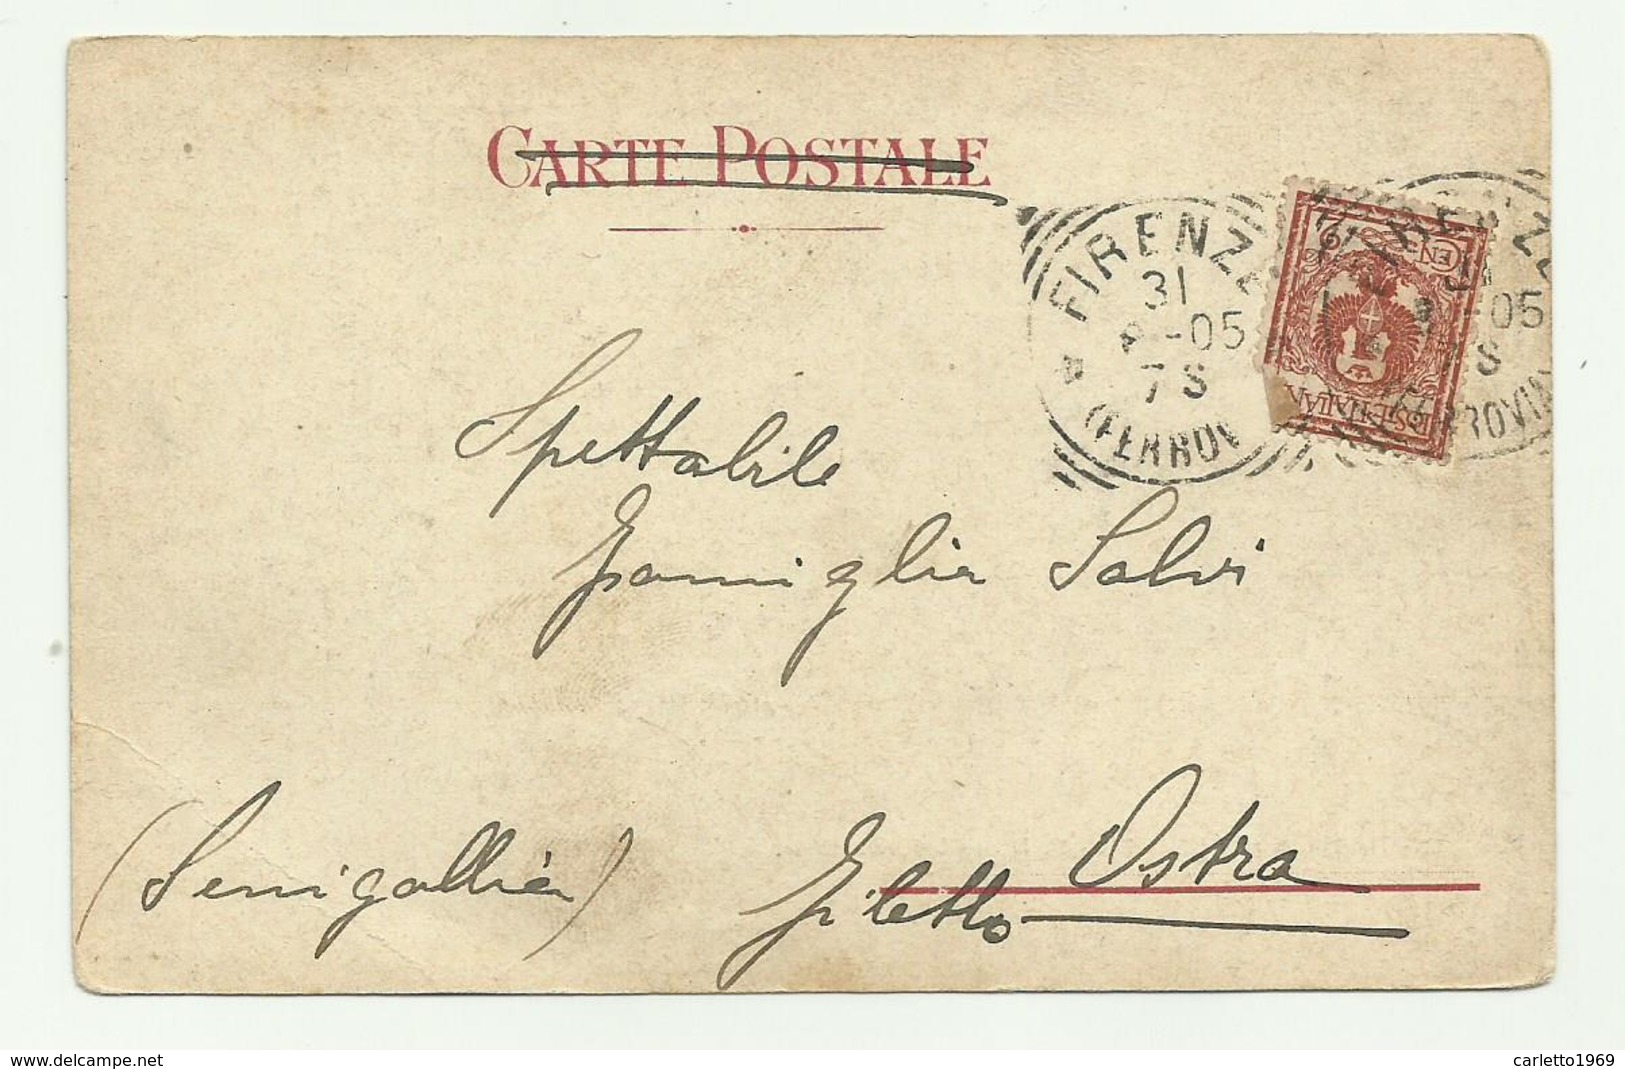 CARTE POSTALE
FIRENZE
31
-05
7S
(FERROV
FIRENZE
31
-05
7S
FERROVIA
CEN. 2
POSTE ITALIANE
Spettabile
Famiglia Salvi
Ostra
(Senigallia) Filetto
www.delcampe.net
carletto1969